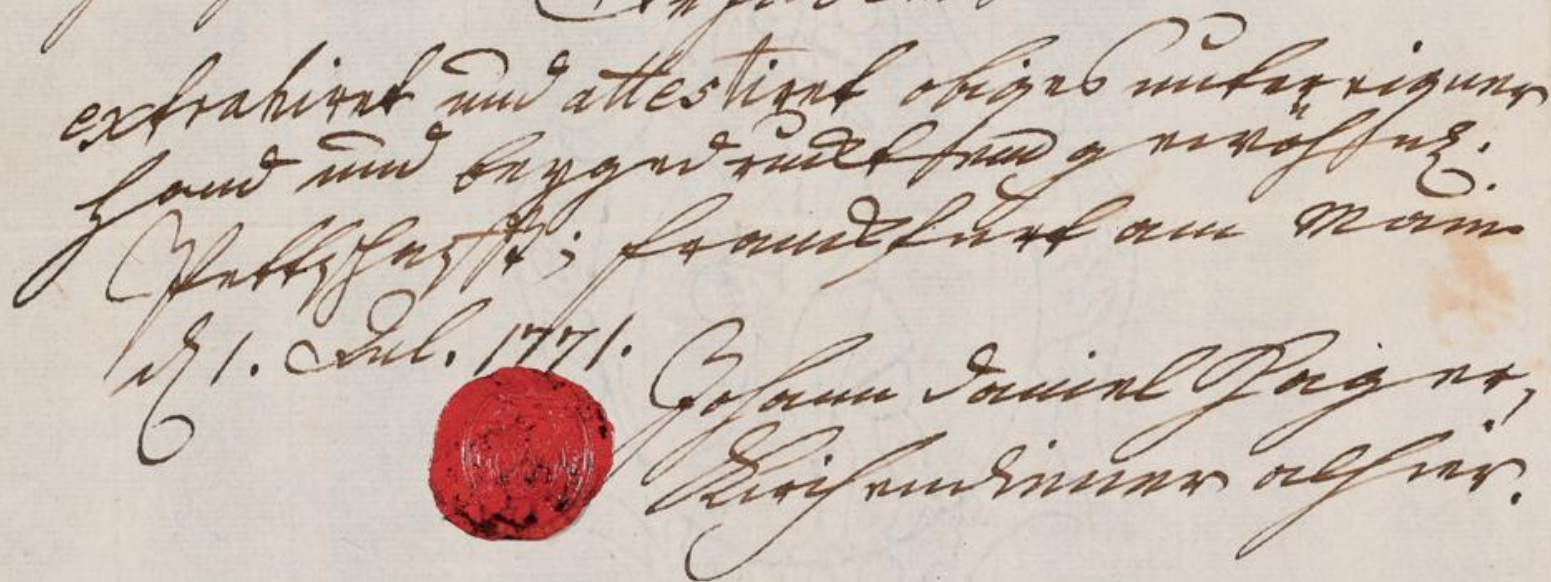 extrahiret und attestiret obiges unter eigner
Hand und beygedrucktem gewöhnl.
Pettschafft; Franckfurt am Mayn
d. 1. Jul. 1771.
Johann Daniel Hager,
Kirchendiener alhier.